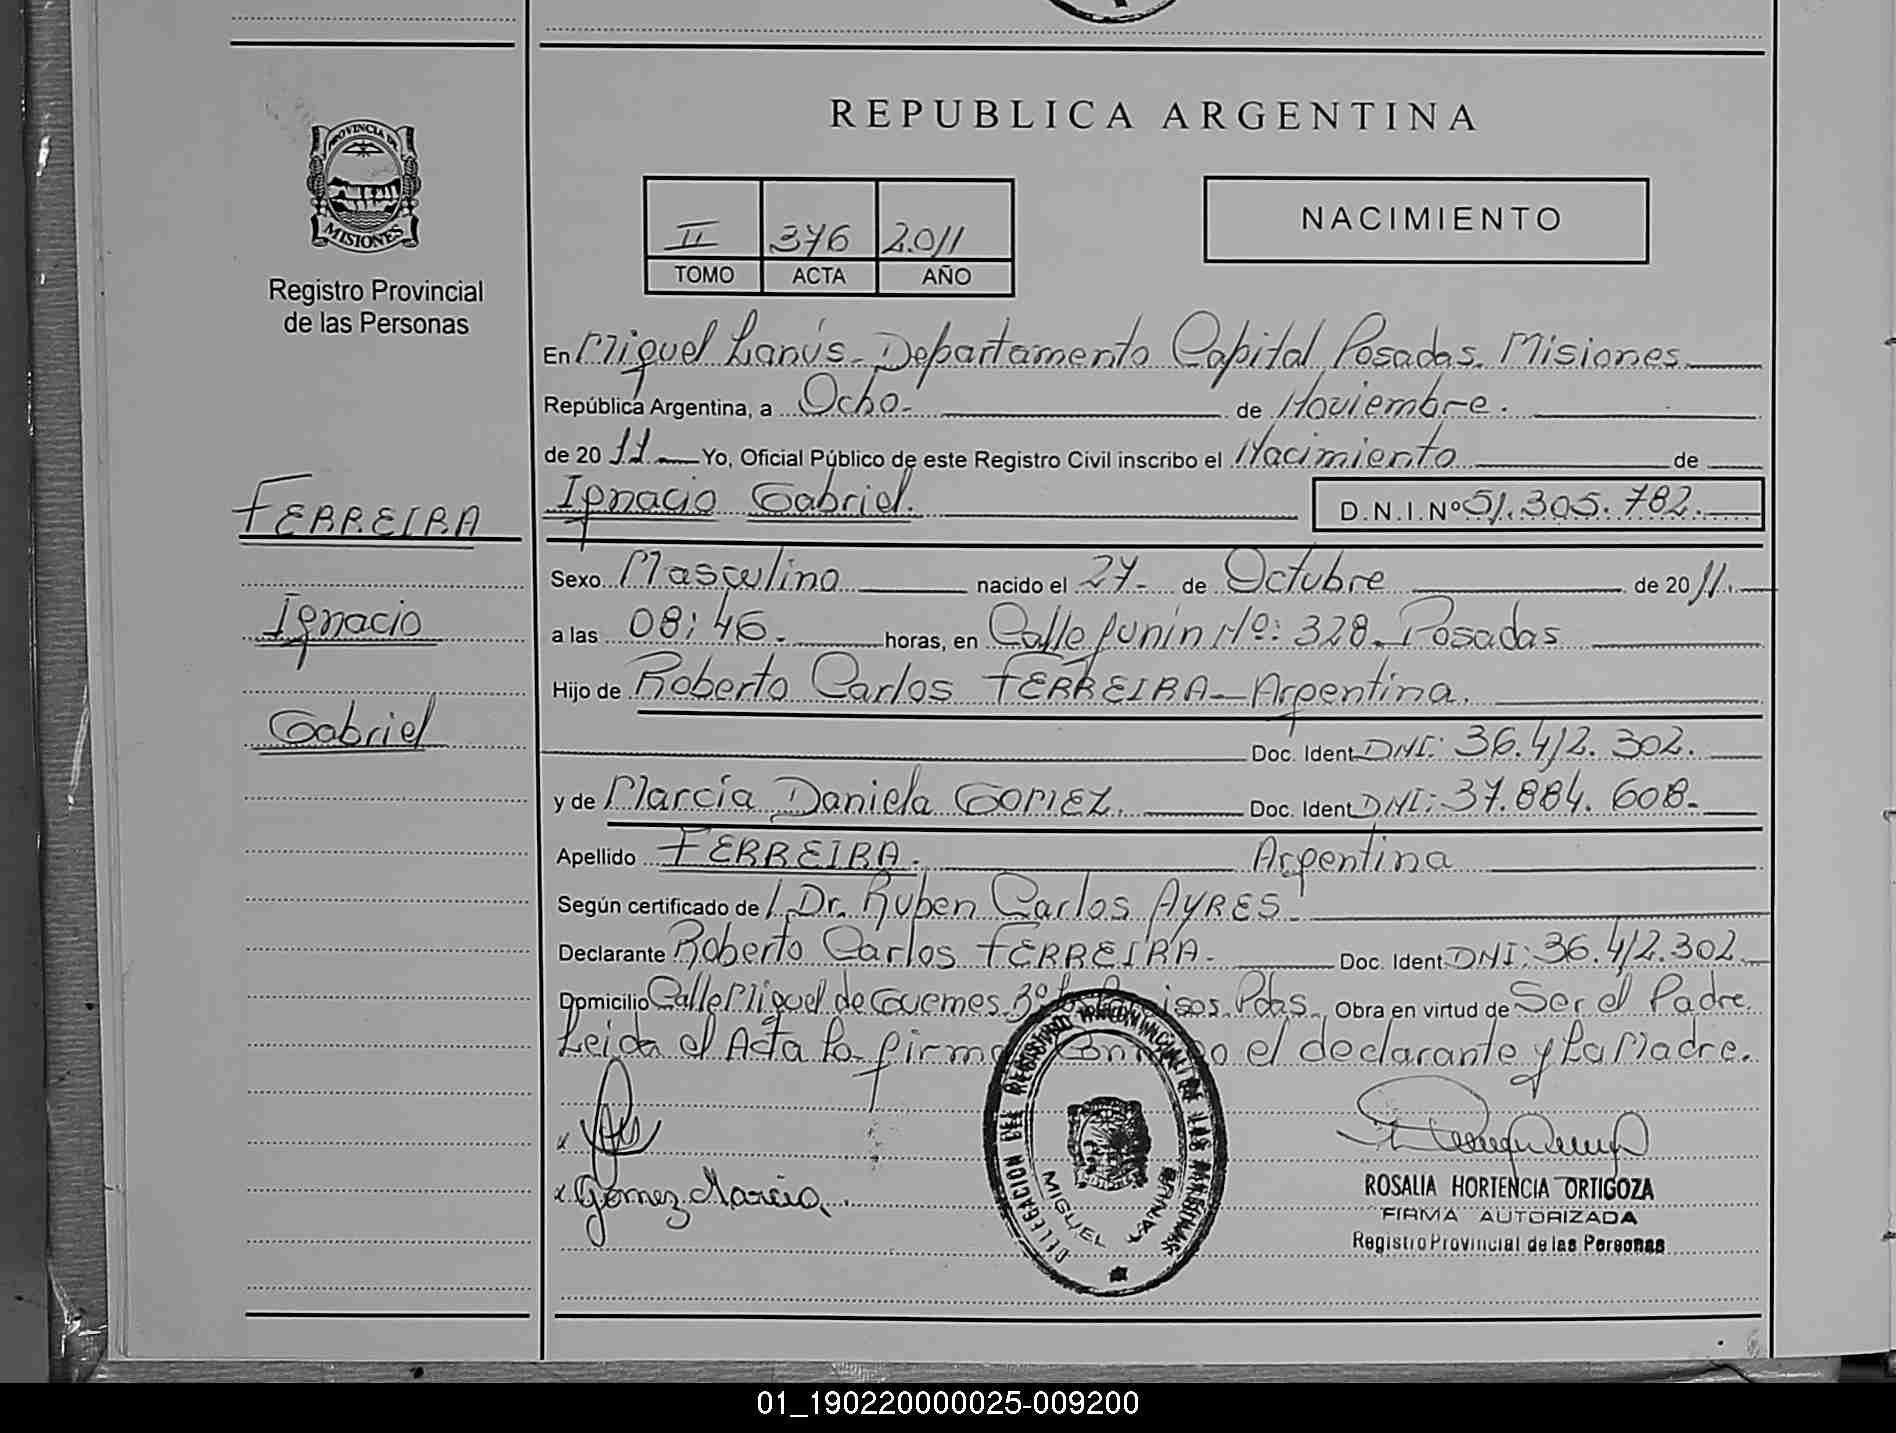 REPUBLICA ARGENTINA
PROVINCIA DE
MISIONES
Registro Provincial
de las Personas
II 376 2.011
TOMO ACTA AÑO
NACIMIENTO
En Miguel Lanús - Departamento Capital Posadas. Misiones
República Argentina, a Ocho. de Noviembre.
de 20 11 Yo, Oficial Público de este Registro Civil inscribo el Nacimiento de
FERREIRA
Ignacio Gabriel. D.N.I.Nº 51.305.782.
Sexo Masculino nacido el 27 de Octubre de 20 11.
Ignacio
a las 08:46. horas, en Calle Junín Nº: 328. Posadas
Hijo de Roberto Carlos FERREIRA - Argentina.
Gabriel
Doc. Ident DNI: 36.412.302.
y de Marcia Daniela GOMEZ. Doc. Ident DNI: 37.884.608.
Apellido FERREIRA. Argentina
Según certificado de Dr. Ruben Carlos AYRES
Declarante Roberto Carlos FERREIRA. Doc. Ident. DNI: 36.412.302.
Domicilio Calle Miguel de Guemes. Bº Pdas. Obra en virtud de Ser el Padre.
Leida el Acta la firma el declarante y la Madre.
x
x Gomez Marcia
DELEGACION DEL REGISTRO PROVINCIAL DE LAS PERSONAS
MIGUEL LANUS
ROSALIA HORTENCIA ORTIGOZA
FIRMA AUTORIZADA
Registro Provincial de las Personas
01_190220000025-009200